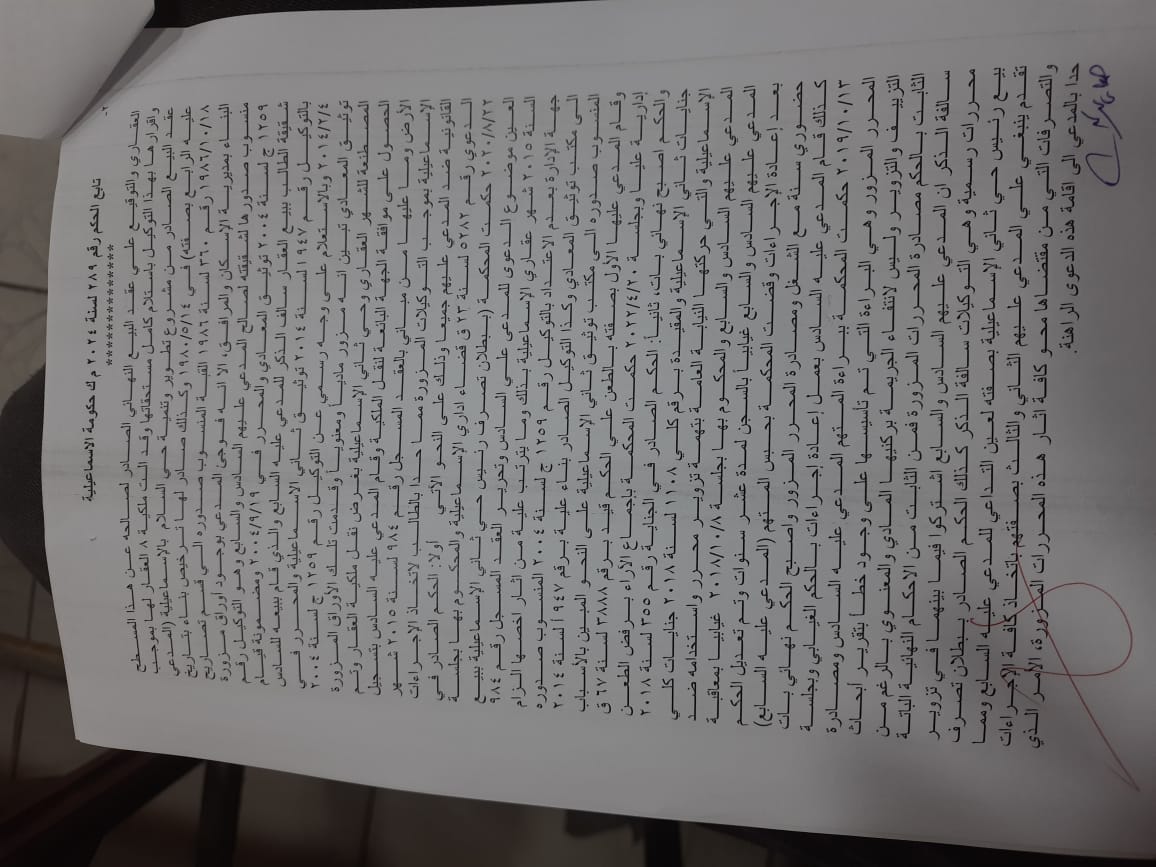 -٢
تابع الحكم رقم ٢٨٩ لسنة ٢٠٢٤ م ك حكومة الاسماعيلية
*************
العقاري والتوقيع على عقد البيع النهائي الصادر لصالحه عن هذا المسطح
وإقرارها بهذا التوكيل باستلام كامل مستحقاتها وقد الت ملكية ٨ العقار لها بموجب
عقد البيع الصادر من مشروع تطوير وتنمية حي السلام بالإسماعيلية (المدعي
عليه الرابع بصفته) في ١٩٨٠/٥/١٤ وكذلك صادر لها ترخيص بناء بتاريخ
١٩٨٦/١٠/١٨ رقم ٣٦٠ لسنة ١٩٨٦ القية المنسوب صدوره الى قسم تصاريح
البناء بمديرية الإسكان والمرافق، الا انه فوجئ المدعي بوجود اوراق مزورة
منسوب صدورها لشقيقته لصالح المدعي عليهم السادس والسابع وهو التوكيل رقم
١٢٥٩ ج لسنة ٢٠٠٤ توثيق المعادي والمحرر في ٢٠٠٤/٩/١٩ ومضمونة قيام
شقيقة الطالب ببيع العقار سالف الذكر للمدعي عليه السابع والذي قام ببيعه للسادس
بالتوكيل رقم ٩٤٧ أ لسنة ٢٠١٤ توثيق ثاني الإسماعيلية والمحرر في
٢٠١٤/٢/٤ وبالاستعلام على وجه رسمي عن التوكيل رقم ١٢٥٩ ج لسنة ٢٠٠٤
توثيق المعادي تبين انه مزور مادياً ومعنوياً وقدمت تلك الأوراق المزورة
المصطنعة للشهر العقاري وحي ثاني الإسماعيلية بغرض نقل ملكية العقار وتم
الحصول على موافقة الجهة البائعة لنقل الملكية وقام المدعي عليه السادس بتسجيل
الأرض وما عليها من مباني بالعقد المسجل رقم ٩٨٤ لسنة ٢٠١٥ شهر
الإسماعيلية بموجب التوكيلات المزورة مما حدا بالطالب لاتخاذ الإجراءات
القانونية ضد المدعي عليهم جميعا وذلك على النحو الآتي أولا: الحكم الصادر في
الدعوي رقم ٥٢٨٢ لسنة ٢٣ ق قضاء اداري الإسماعيلية والمحكوم بها بجلسة
٢٠٢٠/٨/٢٢ حكمت المحكمة (ببطلان تصرف رئيس حي ثاني الإسماعيلية ببيع
العين موضوع الدعوى للمدعي على السادس وتحرير العقد المسجل رقم ٩٨٤
لسنة ٢٠١٥ شهر عقاري الإسماعيلية بذلك وما يترتب عليه من اثار اخصها الزام
جهة الإدارة بعدم الاعتداد بالتوكيل رقم ١٢٥٩ ج لسنة ٢٠٠٤ المنسوب صدوره
الى مكتب توثيق المعادي وكذا التوكيل الصادر بناء عليه برقم ٩٤٧ أ لسنة ٢٠١٤
المنسوب صدوره الى مكتب توثيق ثاني الإسماعيلية على النحو المبين بالأسباب
وقام المدعي عليها الأول بصفته بالطعن على الحكم قيد برقم ٣٨٨٨ لسنة ٦٧ ق
إدارية عليا وبجلسة ٢٠٢٢/٤/٢٠ حكمت المحكمة بإجماع الآراء برفض الطعن
والحكم اصبح نهائي بات، ثانياً: الحكم الصادر في الجناية رقم ٣٥٥ لسنة ٢٠١٨
جنايات ثاني الإسماعيلية والمقيدة برقم كلي ١١٠٨ لسنة ٢٠١٨ جنايات كلي
الإسماعيلية والتي حركتها النيابة العامة بتهمة تزوير محرر واستخدامه ضد
المدعي عليهم السادس والسابع والمحكوم بها بجلسة ٢٠١٨/١٠/٨ غيابيا بمعاقبة
المدعي عليهم السادس والسابع غيابياً بالسجن لمدة عشر سنوات وتم تعديل الحكم
بعد إعادة الإجراءات وقضت المحكمة بحبس المتهم (المدعي عليه السابع)
حضوري سنة مع الشغل ومصادرة المحرر المزور واصبح الحكم نهائي بات
كذلك قام المدعي عليه السادس بعمل إعادة إجراءات بالحكم الغيابي وبجلسة
٢٠١٩/١٠/١٣ حكمت المحكمة ببراءة المتهم المدعي عليه السادس ومصادرة
المحرر المزور وهي البراءة التي تم تأسيسها على وجود خطأ بتقرير أبحاث
التزييف والتزوير وليس لانتفاء الجريمة بركنيها المادي والمعنوي بالرغم من
الثابت بالحكم مصادرة المحررات المزورة فمن الثابت من الاحكام النهائية الباتة
سالفة الذكر ان المدعي عليهم السادس والسابع اشتركوا فيما بينهما في تزوير
محررات رسمية وهي التوكيلات سالفة الذكر كذلك الحكم الصادر ببطلان تصرف
بيع رئيس حي ثاني الإسماعيلية بصفته لعين التداعي للمدعي عليه السابع ومما
تقدم ينبغي على المدعي عليهم الثاني والثالث بصفتهم باتخاذ كافة الإجراءات
والتصرفات التي من مقتضاها محو كافة اثار هذه المحررات المزورة، الأمر الذي
حدا بالمدعي الى اقامة هذه الدعوى الراهنة.